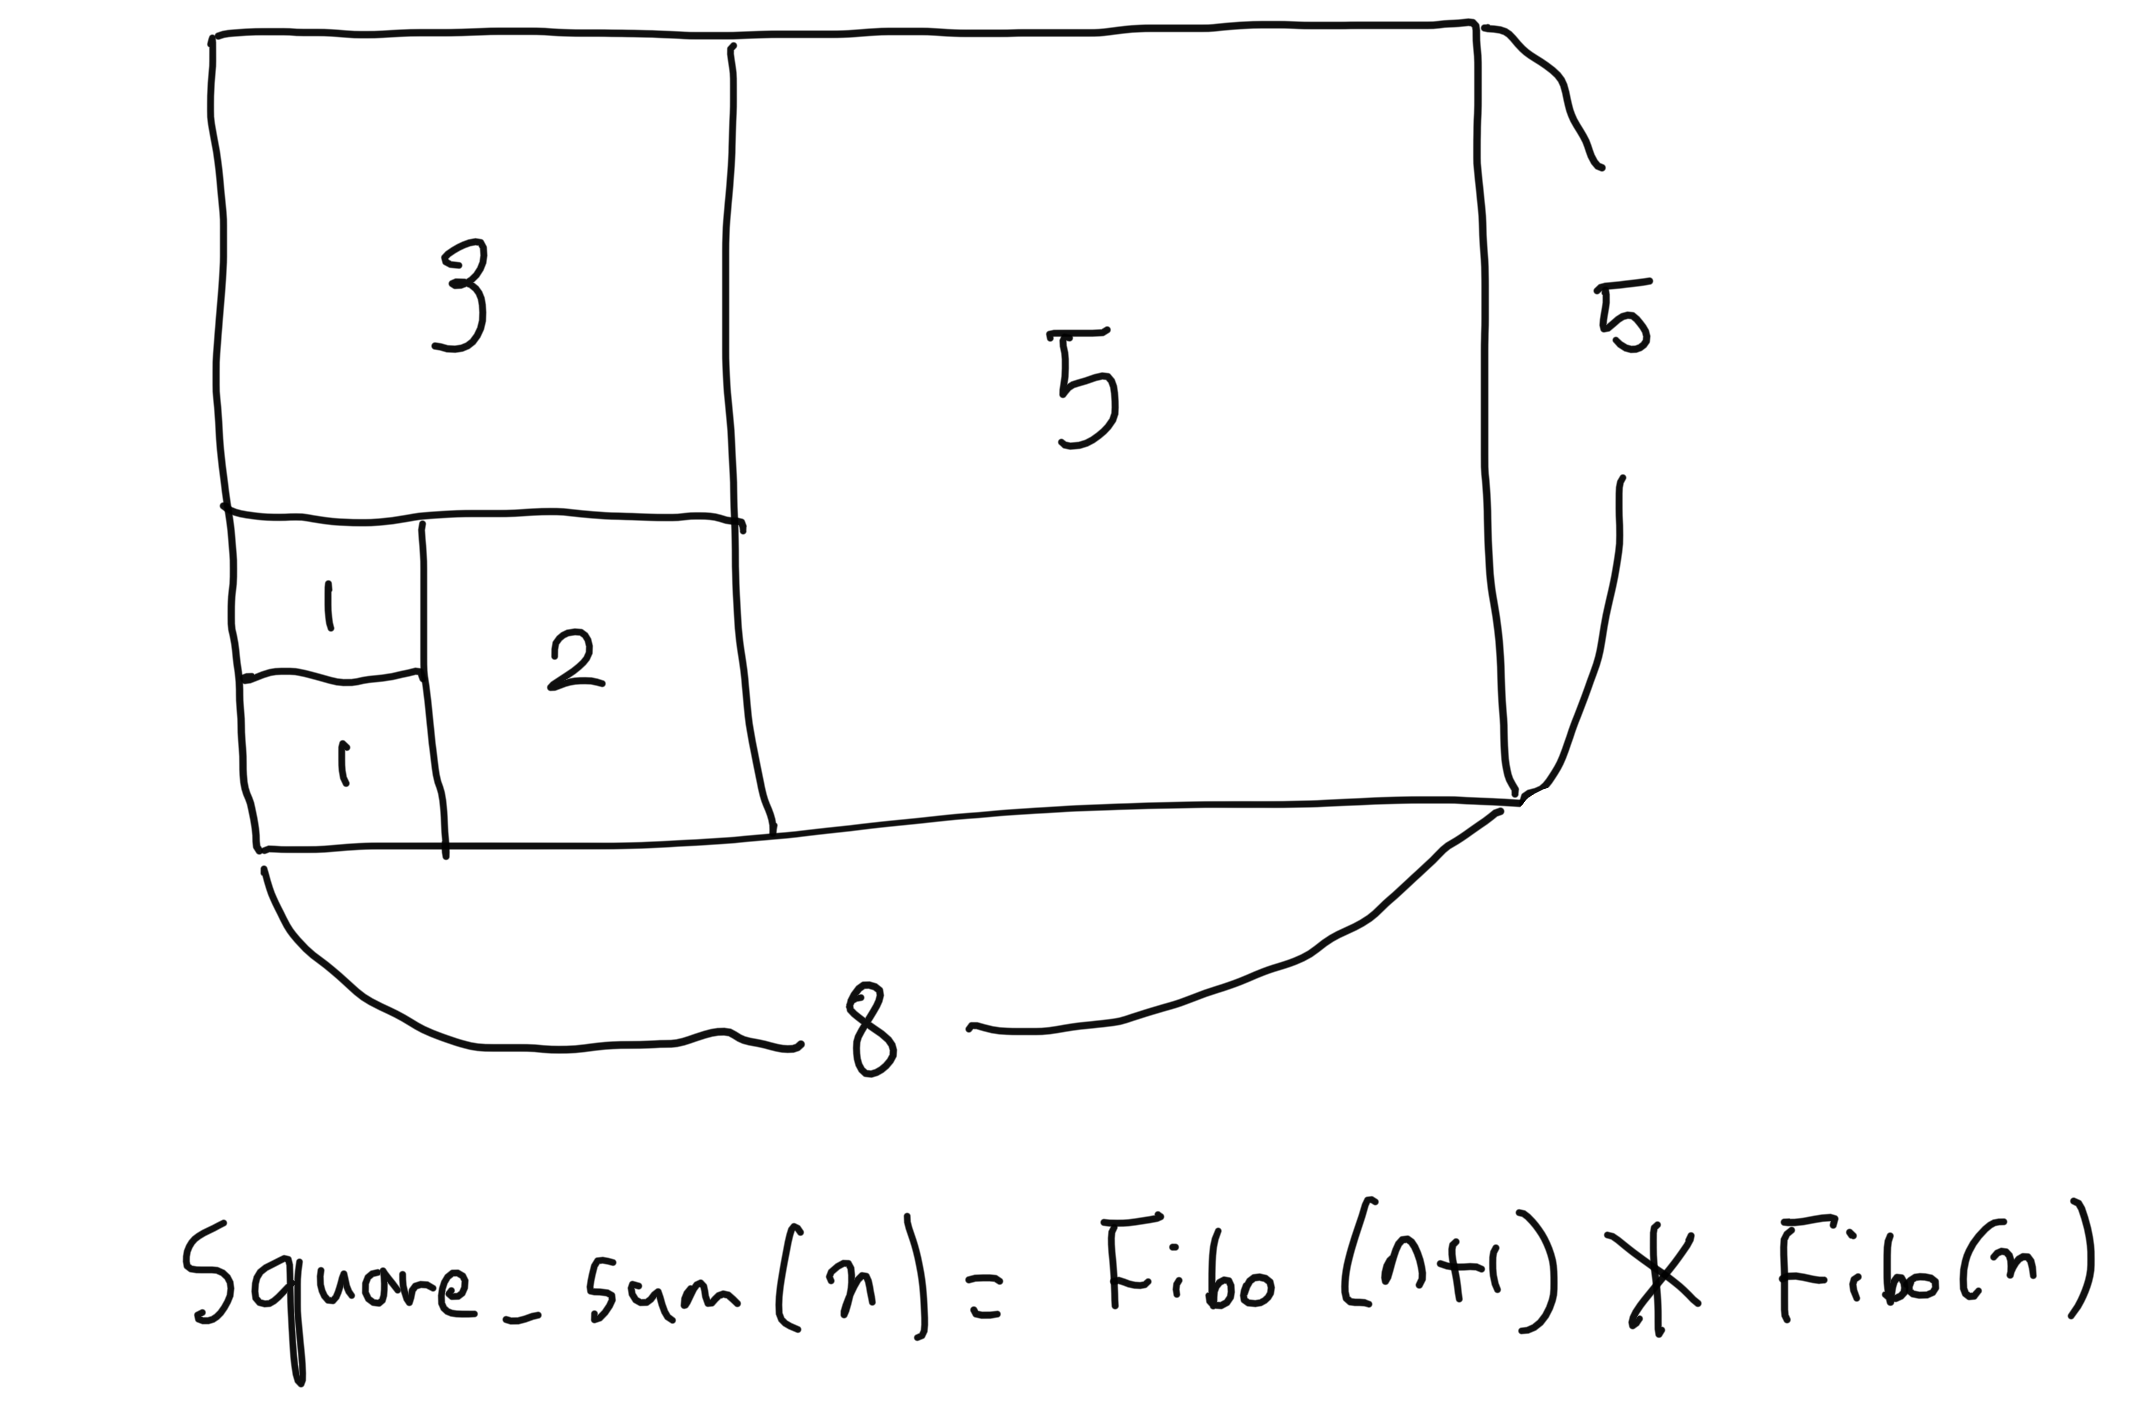 3
5
5
1
2
1
8
Square_sum(n) = Fibo(n+1) * Fibo(n)